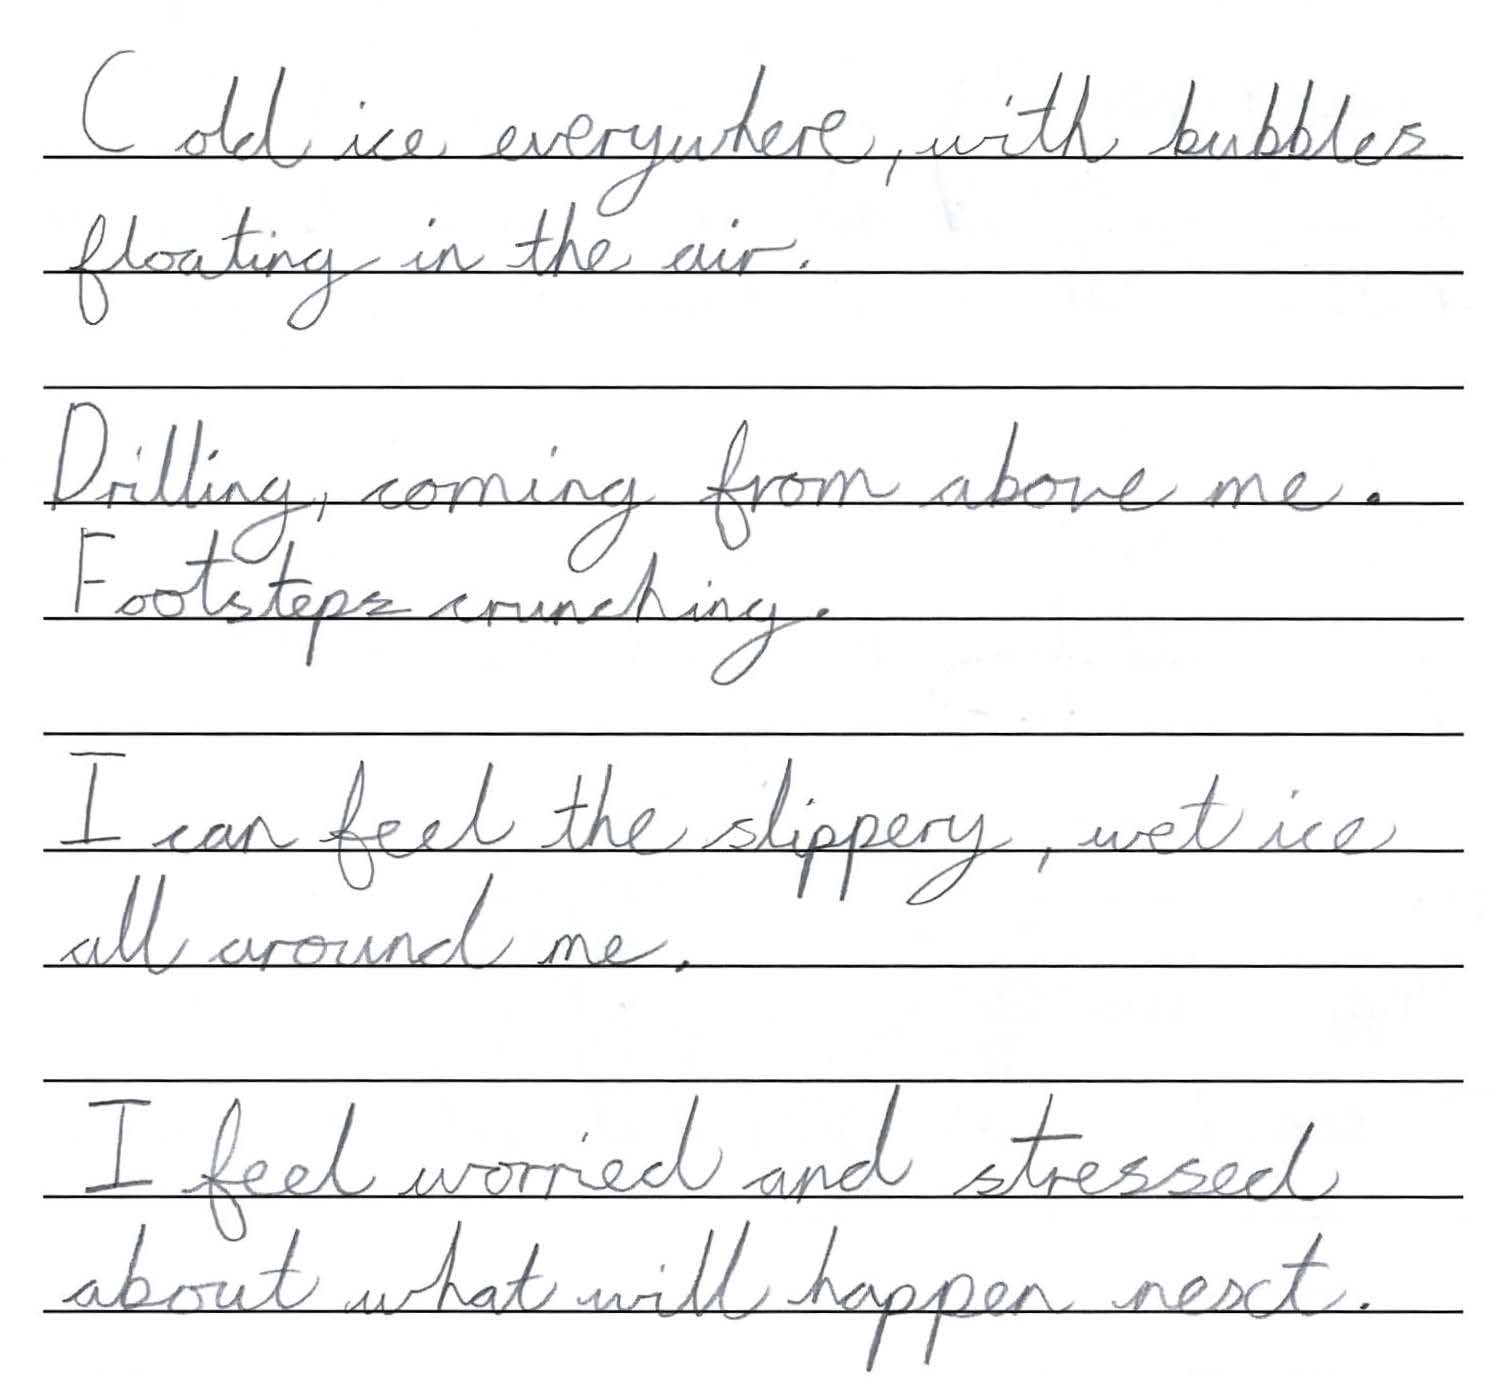 Cold ice everywhere, with bubbles
floating in the air.
Drilling, coming from above me.
Footsteps crunching.
I can feel the slippery, wet ice
all around me.
I feel worried and stressed
about what will happen next.